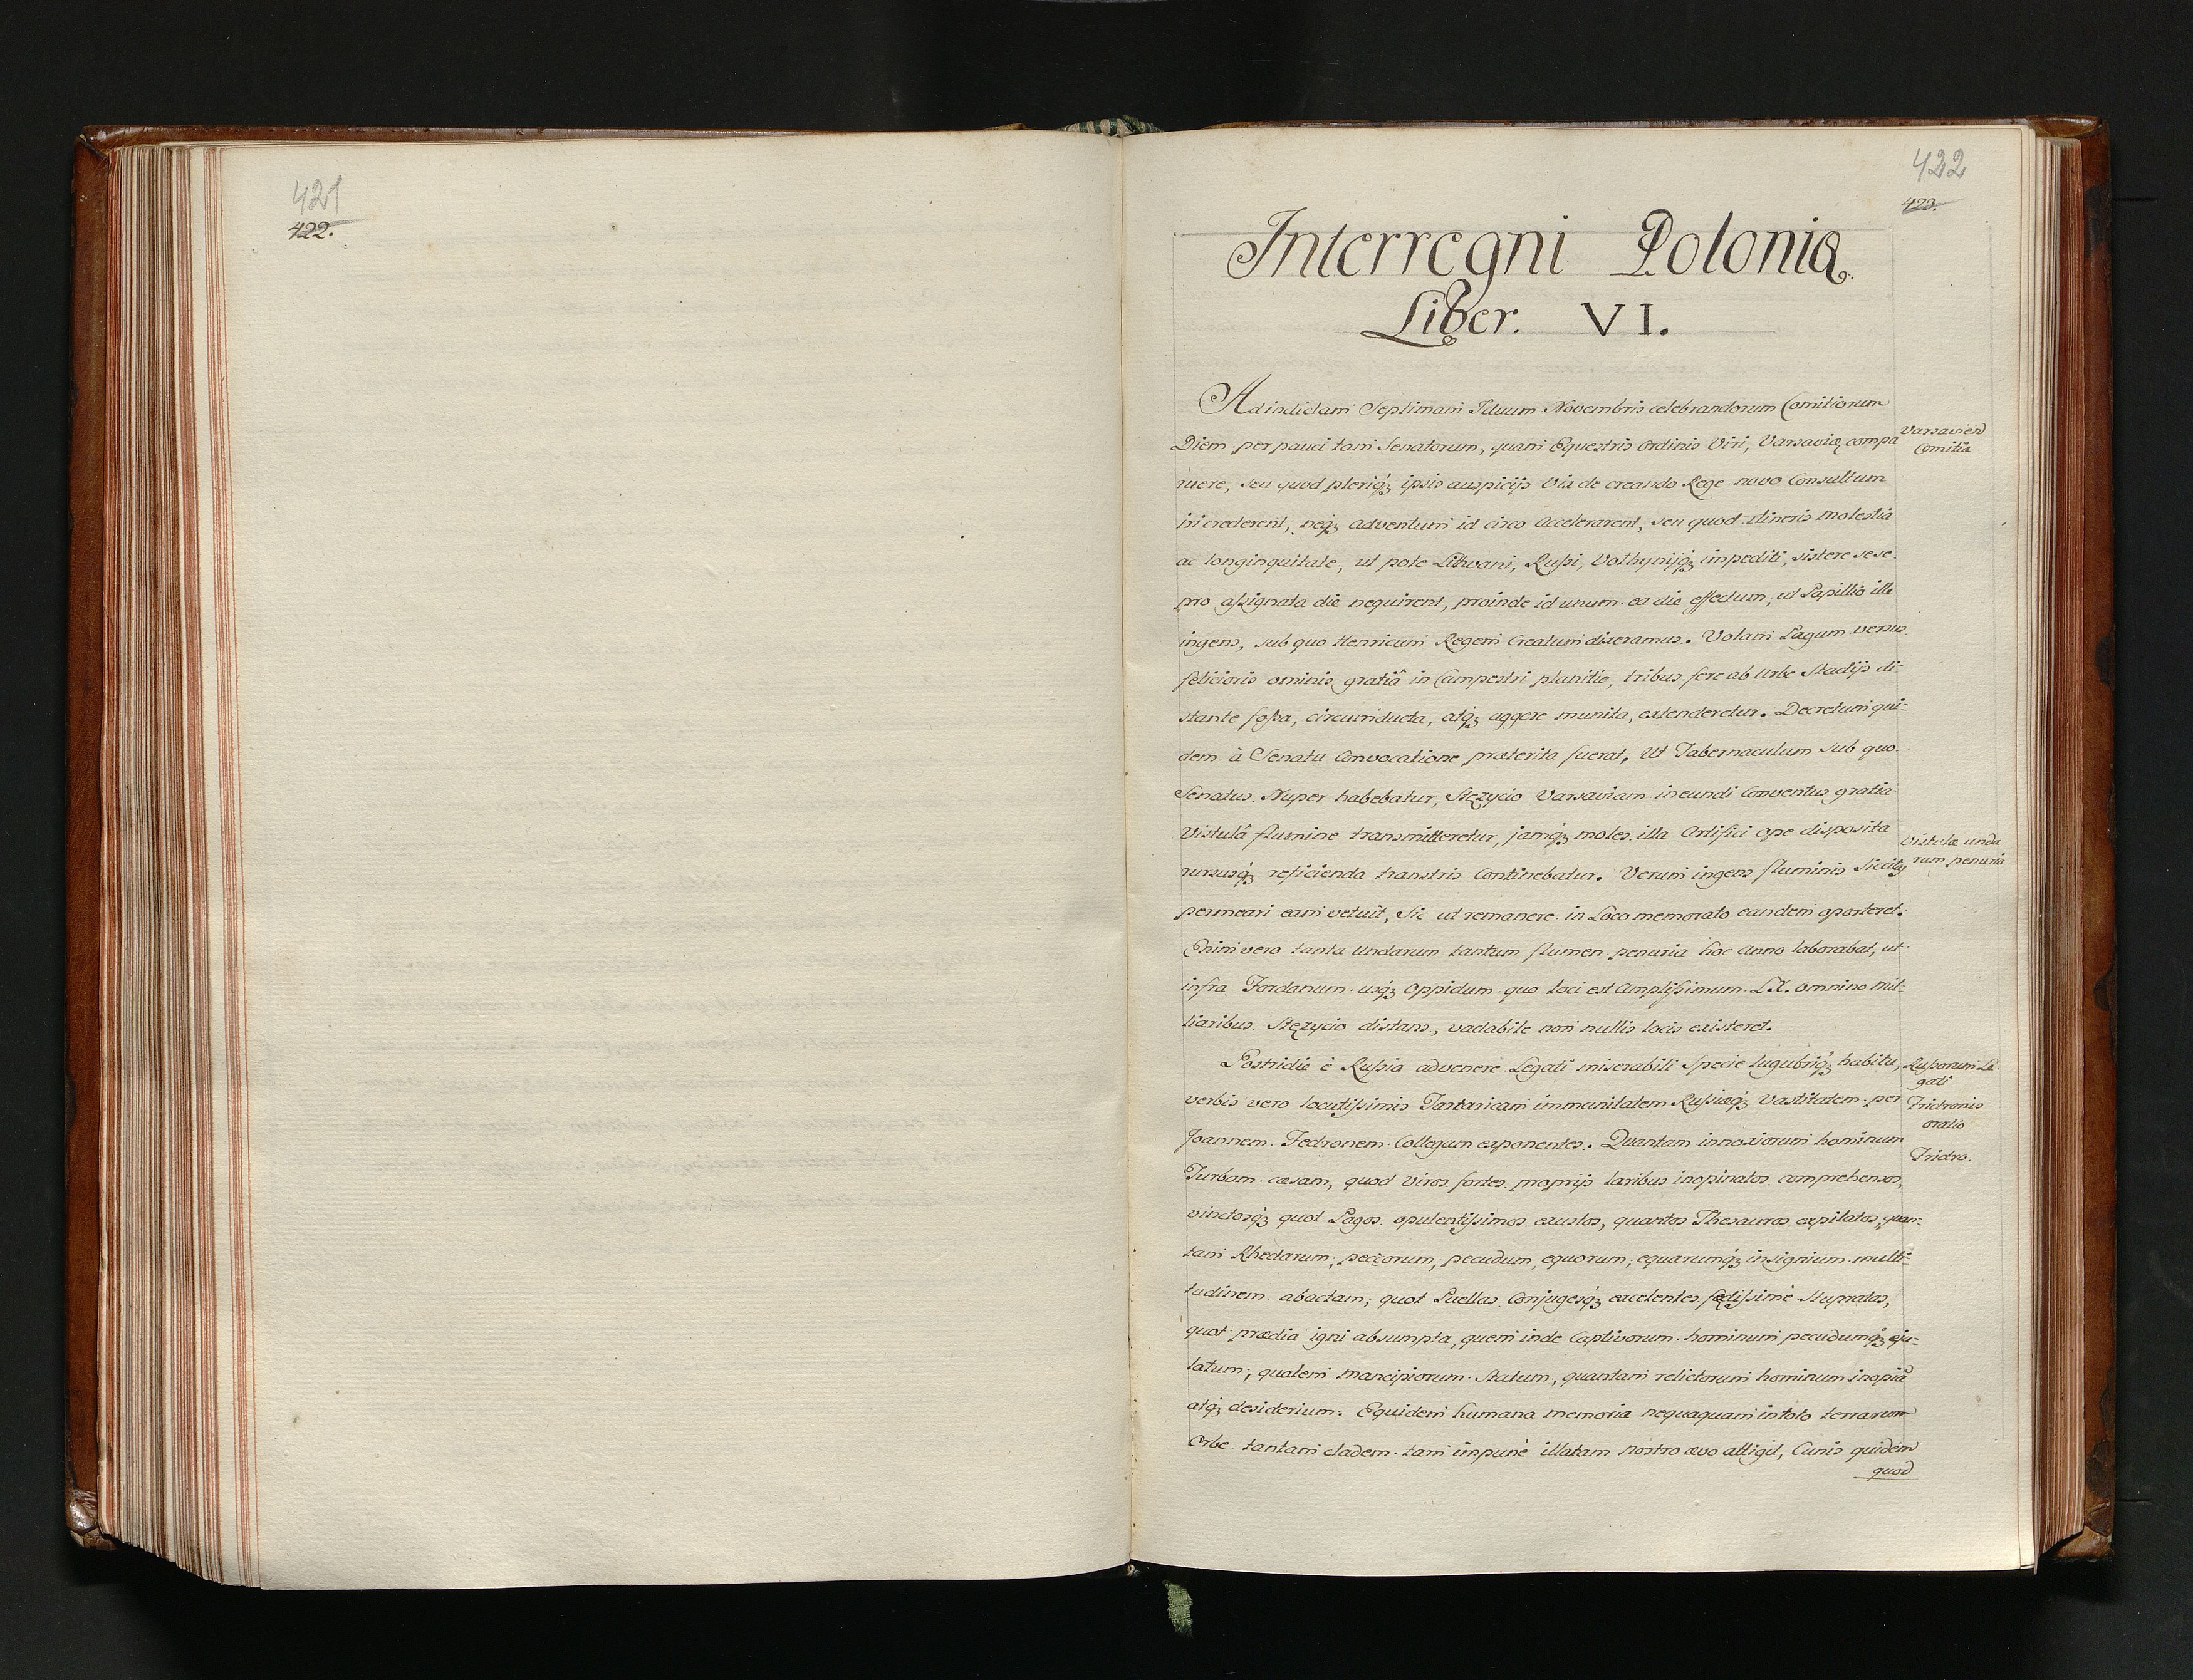 421
422.
422
423.
Interregni Poloniæ
Liber. VI.
Ad indictam Septimam Iduum Novembris celebrandorum Comitiorum
Diem perpauci tam Senatorum, quam Equestris Ordinis Viri, Varsaviæ compa
ruere, seu quod pleriq́ꝫ ipsis auspicijs Vix de creando Rege novo Consultum
iri crederent, neq́ꝫ adventum id circo Accelerarent, seu quod itineris molestia
ac longinquitate, ut pote Lithvani, Rußi, Volhynijq́ꝫ impediti, sistere sese
pro aßignata die nequirent, proinde id unum ea die effectum, ut Papillio ille
ingens, sub quo Henricum Regem Creatum dixeramus. Volam Pagum versus
felicioris ominis gratiâ in Campestri planitie, tribus fere ab Urbe Stadijs di-
stante foßa, circumducta, atq́ꝫ aggere munita, extenderetur. Decretum qui-
dem à Senatu Convocatione præterita fuerat, Ut Tabernaculum sub quo
Senatus Nuper habebatur, Stęzycio Varsaviam ineundi Conventus gratia
Vistulâ flumine transmitteretur, jamq́ꝫ moles illa Artifici ope disposita
rursusq́ꝫ reficienda transtris Continebatur. Verum ingens fluminis Siccitas
permeari eam vetuit, Sic ut remanere in Loco memorato eandem oporteret.
Enim vero tanta Undarum tantum flumen penuria hoc Anno laborabat, ut
infra Fordanum usq́ꝫ Oppidum quo loci est Amplißimum LX. omnino mil-
liaribus Stęzycio distans, vadabile non nullis locis existeret.
Postridie è Rußia advenere Legati miserabili Specie lugubriq́ꝫ habitu,
verbis vero locutißimis Tartaricam immanitatem Rußiæq́ꝫ Vastitatem per
Joannem Fedronem Collegam exponentes. Quantam innoxiorum hominum
Turbam cæsam, quod Viros fortes proprijs laribus inopinatos comprehensos,
vinctosq́ꝫ quot Pagos opulentißimos exustos, quantos Thesauros expilatos, quan-
tam Rhedarum, peccorum, pecudum, equorum, equarumq́ꝫ insignium multi-
tudinem abactam, quot Puellas Conjugesq́ꝫ excelentes fædißime Stupratas,
quot prædia igni absumpta, quem inde Captivorum hominum pecudumq́ꝫ eju-
latum, qualem mancipiorum Statum, quantam relictorum hominum inopiã
atq́ꝫ desiderium. Equidem humana memoria nequaquam in toto terrarum
Orbe tantam cladem tam impunè illatam nostro ævo attigit, Cunis quidem
quod
Varsavien
Comitia
Vistulæ unda
rum penuria
Rußorum Le-
gati
Fridronis
oratio
Fridro.